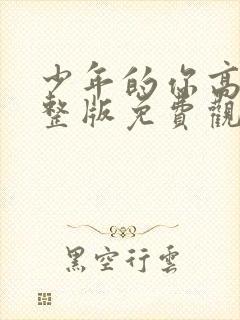 少年的你高
整版免費觀
黑空行雲